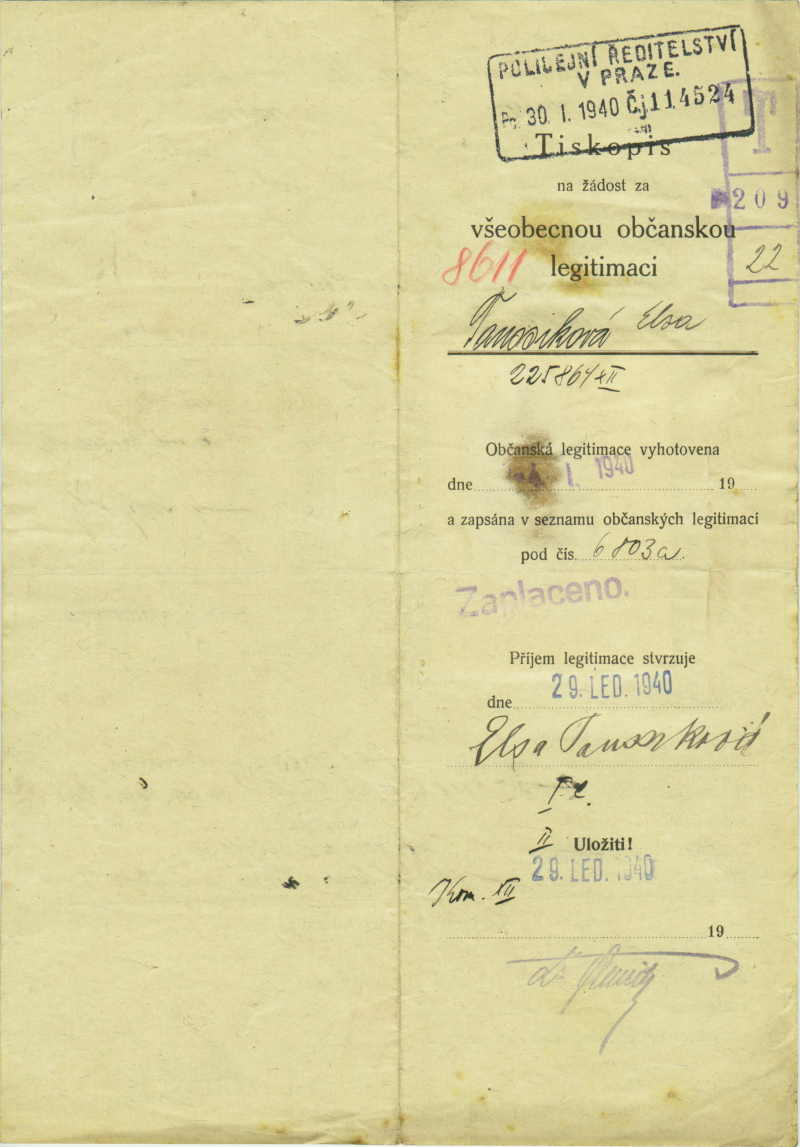 POLICEJNÍ ŘEDITELSTVÍ
V PRAZE.
30. I. 1940 Čj. 114524
Tiskopis
na žádost za
T
209
22
všeobecnou občanskou
8611 legitimaci
Elsa
225864 XII
Občanská legitimace vyhotovena
dne I. 1940 19
a zapsána v seznamu občanských legitimací
pod čís. 6803a.
Zaplaceno.
Příjem legitimace stvrzuje
dne 29. LED. 1940
Elsa
II Uložiti!
29. LED. 1940
Kom. XII
19